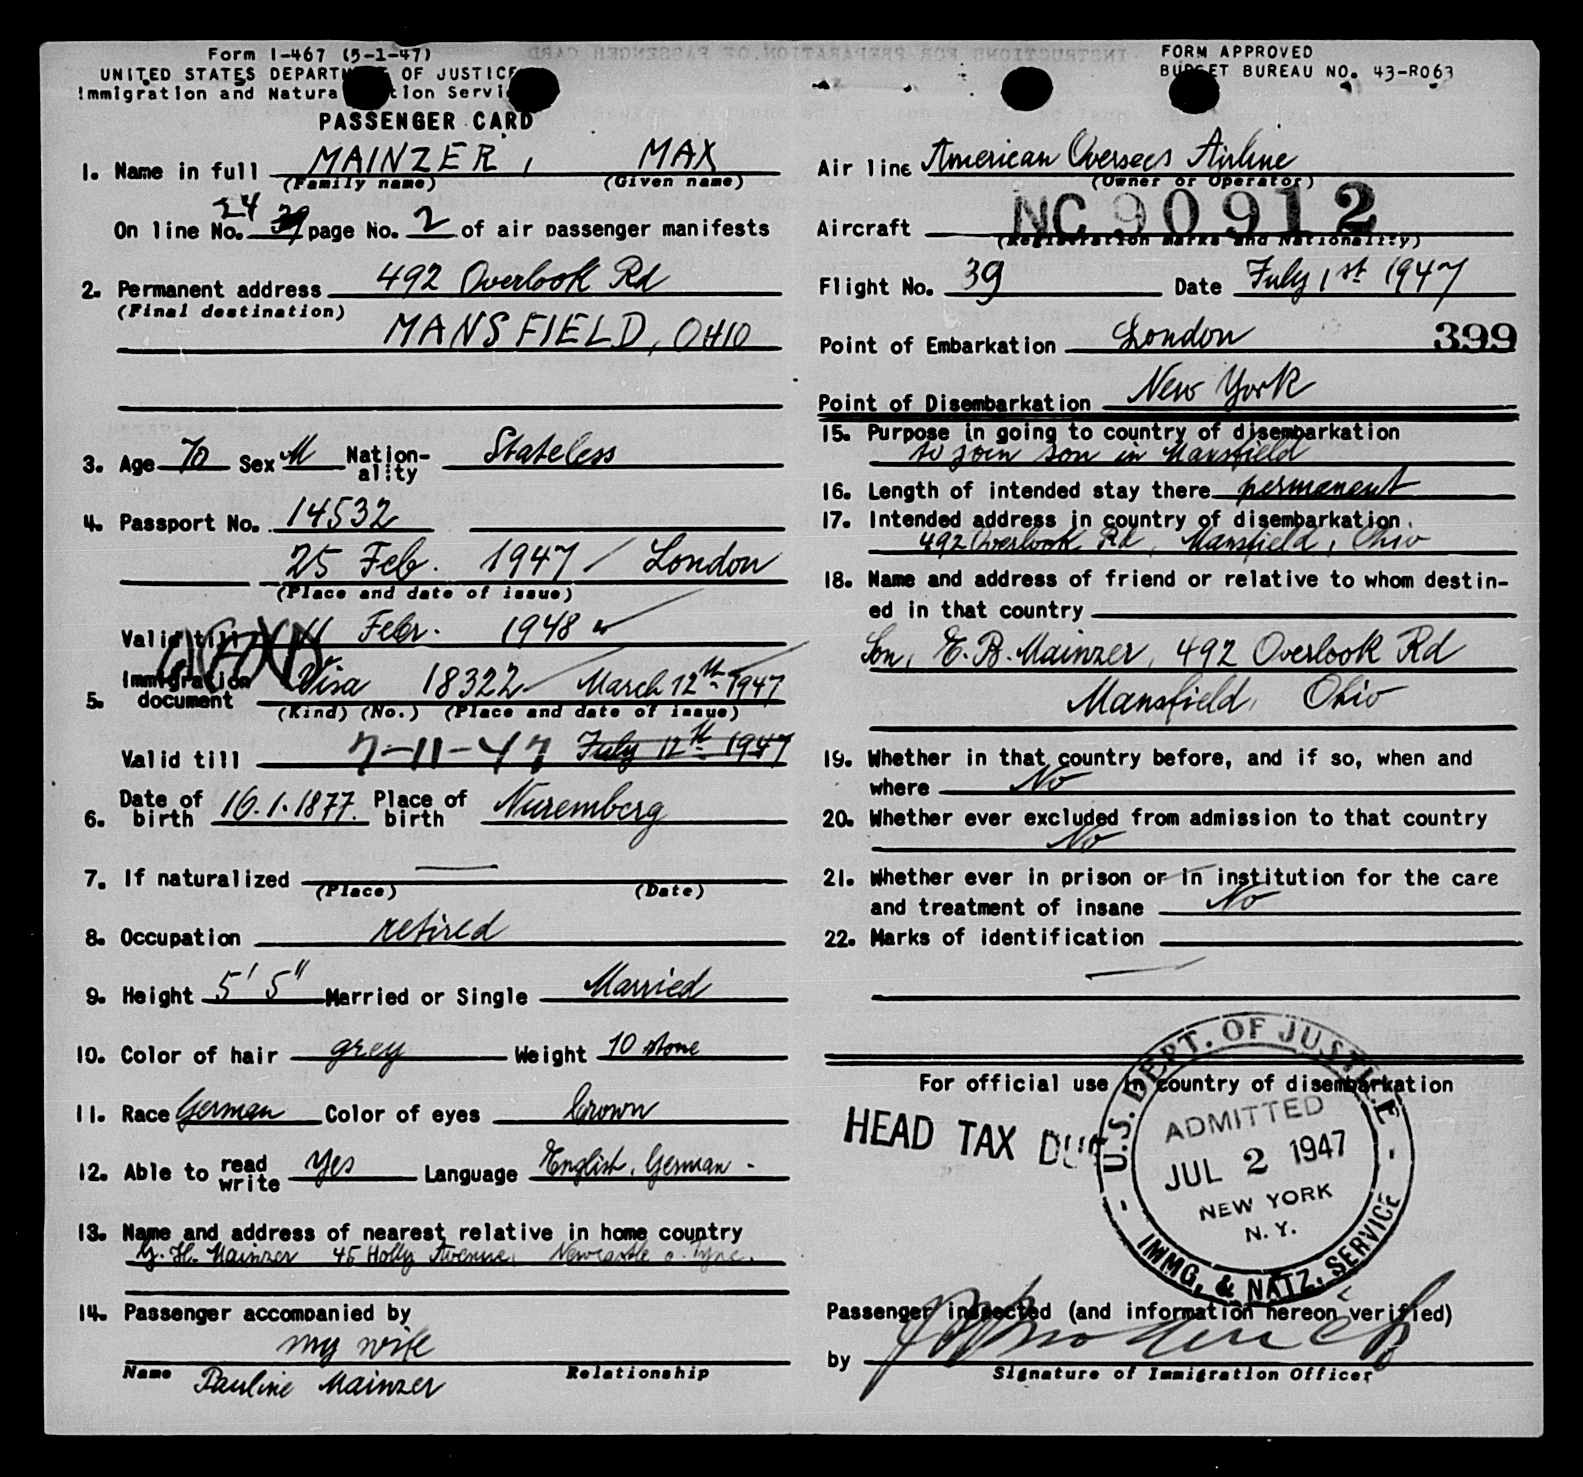 Form I-467 (5-1-47)
UNITED STATES DEPARTM OF JUSTICE
Immigration and Natura tion Servi
PASSENGER CARD
1. Name in full MAINZER, MAX
(Family name) (Given name)
24
On line No. 39 page No. 2 of air passenger manifests
2. Permanent address 492 Overlook Rd
(Final destination)
MANSFIELD, OHIO
3. Age 70 Sex M Nation-ality Stateless
4. Passport No. 14532
25 Feb. 1947 / London
(Place and date of issue)
Valid till 11 Febr. 1948
5. Immigration document Visa 18322 March 12th 1947
(Kind) (No.) (Place and date of issue)
Valid till 7-11-47 July 12th 1947
6. Date of birth 16.1.1877. Place of birth Nuremberg
7. If naturalized —
(Place) (Date)
8. Occupation retired
9. Height 5' 5" Married or Single Married
10. Color of hair grey Weight 10 stone
11. Race German Color of eyes brown
12. Able to read write Yes Language English, German -
13. Name and address of nearest relative in home country
H. Mainzer 45 Holly Avenue, Newcastle o. Tyne.
14. Passenger accompanied by
my wife
Name Relationship
Pauline Mainzer
FORM APPROVED
BUDGET BUREAU NO. 43-R063
Air line American Overseas Airline
(Owner or Operator)
Aircraft NC 90912
(Registration marks and Nationality)
Flight No. 39 Date July 1st 1947
Point of Embarkation London 399
Point of Disembarkation New York
15. Purpose in going to country of disembarkation
to join son in Mansfield
16. Length of intended stay there permanent
17. Intended address in country of disembarkation
492 Overlook Rd, Mansfield, Ohio
18. Name and address of friend or relative to whom destin-
ed in that country
Son, E. B. Mainzer, 492 Overlook Rd
Mansfield, Ohio
19. Whether in that country before, and if so, when and
where No
20. Whether ever excluded from admission to that country
No
21. Whether ever in prison or in institution for the care
and treatment of insane No
22. Marks of identification
—
For official use in country of disembarkation
HEAD TAX DUE
U.S. DEPT. OF JUSTICE
ADMITTED
JUL 2 1947
NEW YORK
N. Y.
IMMG. & NATZ. SERVICE
Passenger inspected (and information hereon verified)
by
Signature of Immigration Officer